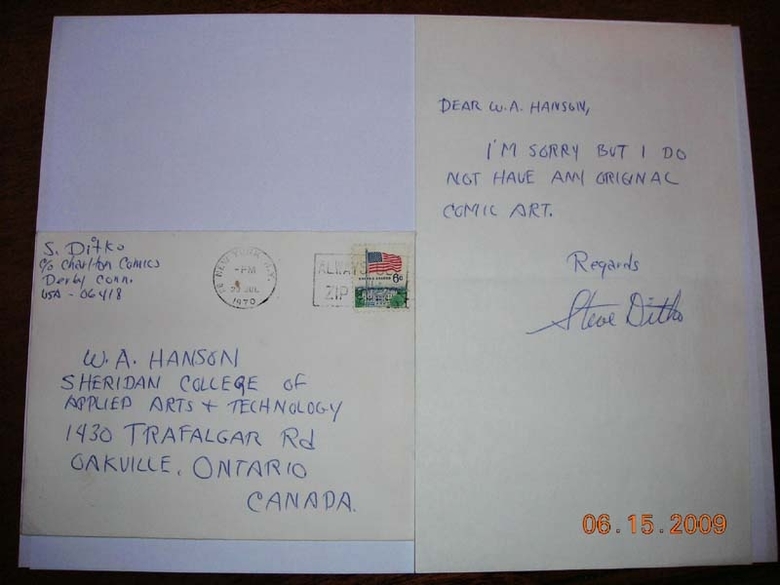 DEAR W.A. HANSON,
I'M SORRY BUT I DO
NOT HAVE ANY ORIGINAL
COMIC ART.
Regards
Steve Ditko
S. Ditko
c/o Charlton Comics
Derby Conn.
USA - 06418
NEW YORK, N.Y.
-PM
JUL
1970
ALWAYS USE
ZIP
6c
W. A. HANSON
SHERIDAN COLLEGE OF
APPLIED ARTS + TECHNOLOGY
1430 TRAFALGAR Rd
OAKVILLE, ONTARIO
CANADA.
06.15.2009